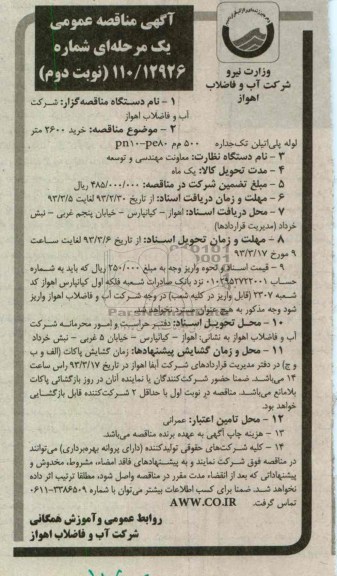 آگهی مناقصه عمومی
یک مرحله‌ای شماره
۱۱۰/۱۲۹۲۶ (نوبت دوم)
وزارت نیرو
شرکت آب و فاضلاب
اهواز
۱ - نام دستگاه مناقصه‌گزار: شرکت
آب و فاضلاب اهواز
۲ - موضوع مناقصه: خرید ۲۶۰۰ متر
لوله پلی‌اتیلن تک‌جداره ۵۰۰ م‌م pn۱۰-pe۸۰
۳ - نام دستگاه نظارت: معاونت مهندسی و توسعه
۴ - مدت تحویل کالا: یک ماه
۵ - مبلغ تضمین شرکت در مناقصه: ۴۸۵/۰۰۰/۰۰۰ ریال
۶ - مهلت و زمان دریافت اسناد: از تاریخ ۹۳/۲/۳۰ لغایت ۹۳/۳/۵
۷ - محل دریافت اسناد: اهواز - کیانپارس - خیابان پنجم غربی - نبش
خرداد (مدیریت قراردادها)
۸ - مهلت و زمان تحویل اسناد: از تاریخ ۹۳/۳/۶ لغایت ساعت
۹ مورخ ۹۳/۳/۱۷
۹ - قیمت اسناد و نحوه واریز وجه به مبلغ ۲۵۰/۰۰۰ ریال که باید به شماره
حساب ۰۱۰۲۹۵۲۷۲۲۰۰۱ نزد بانک صادرات شعبه فلکه اول کیانپارس اهواز کد
شعبه ۲۳۰۷ (قابل واریز در کلیه شعب) در وجه شرکت آب و فاضلاب اهواز واریز
شود وجه مذکور به هیچ عنوان مسترد نخواهد شد.
۱۰ - محل تحویل اسناد: دفتر حراست و امور محرمانه شرکت
آب و فاضلاب اهواز به نشانی: اهواز - کیانپارس - خیابان ۵ غربی - نبش خرداد
۱۱ - محل و زمان گشایش پیشنهادها: زمان گشایش پاکات (الف و ب
و ج) در دفتر مدیریت قراردادهای شرکت آبفا اهواز در تاریخ ۹۳/۳/۱۷ راس ساعت
۱۴ می‌باشد. ضمنا حضور شرکت‌کنندگان یا نماینده آنان در روز بازگشائی پاکات
بلامانع می‌باشد. مناقصه در نوبت اول با حداقل ۲ شرکت‌کننده قابل بازگشایی
خواهد بود.
۱۲ - محل تامین اعتبار: عمرانی
۱۳ - هزینه چاپ آگهی به عهده برنده مناقصه می‌باشد.
۱۴ - کلیه شرکت‌های حقوقی تولیدکننده (دارای پروانه بهره‌برداری) می‌توانند
در مناقصه فوق شرکت نمایند و به پیشنهادهای فاقد امضاء، مشروط، مخدوش و
پیشنهاداتی که بعد از انقضاء مدت مقرر در مناقصه واصل شود، مطلقا ترتیب اثر داده
نخواهد شد. ضمنا برای کسب اطلاعات بیشتر می‌توان با شماره ۳۳۸۶۵۰۹-۰۶۱۱
تماس گرفت. AWW.CO.IR
روابط عمومی وآموزش همگانی
شرکت آب و فاضلاب اهواز